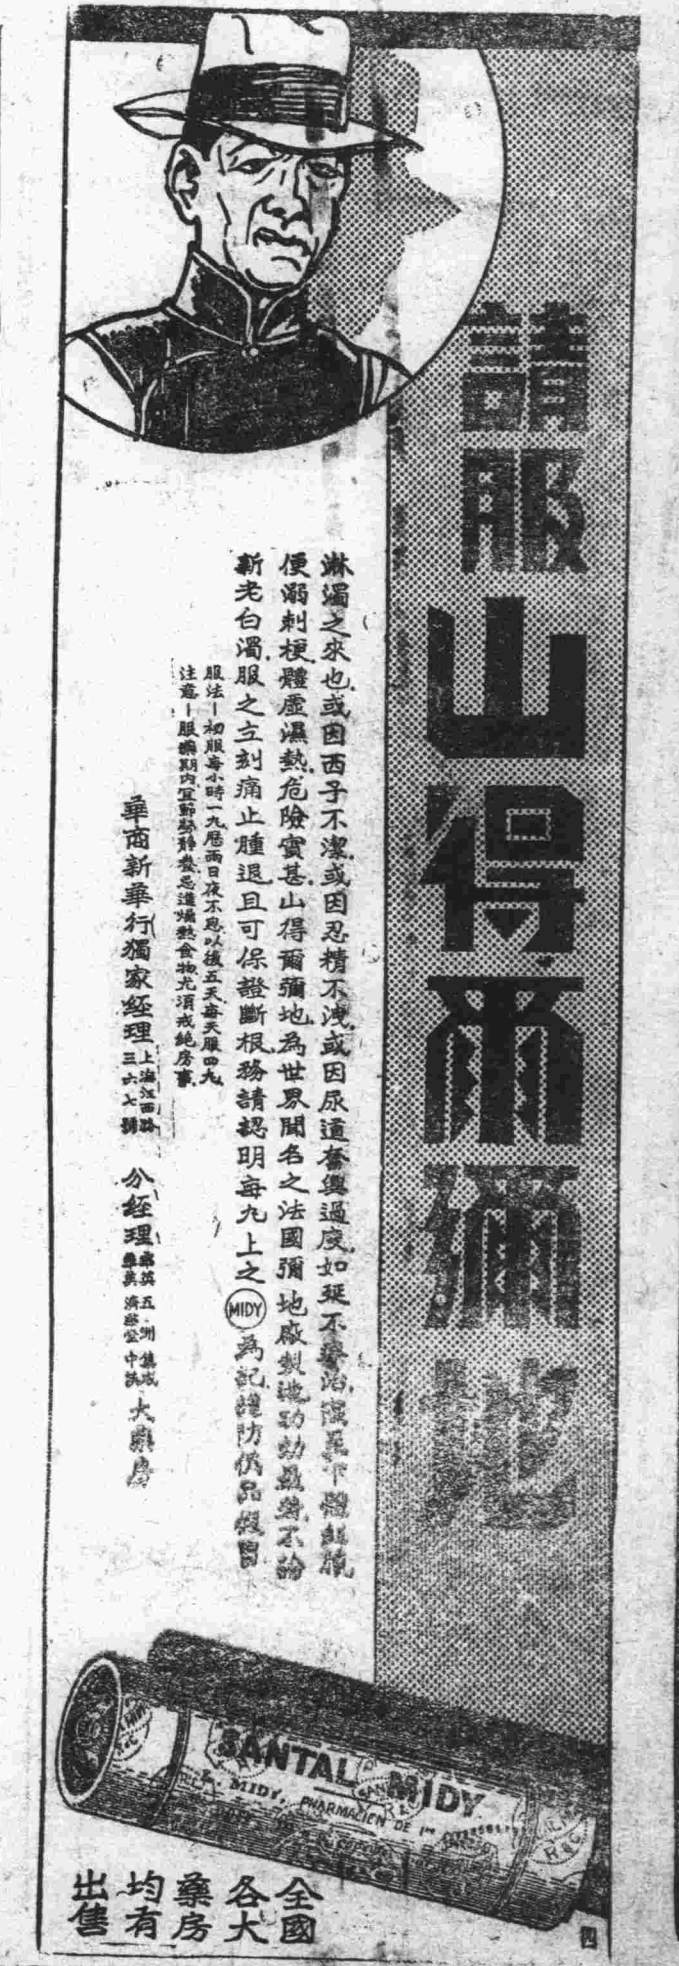 請服山得爾彌地
淋濁之來也或因西子不潔或因忍精不洩或因尿道奮興過度如延不療治深至下體紅腫
便溺刺梗體虛濕熱危險實甚山得爾彌地為世界聞名之法國彌地廠製造功効不論
新老白濁服之立刻痛止腫退且可保證斷根務請認明每九上之MIDY為記謹防偽品假冒
服法—初服每小時一九歷兩日夜不息以後五天每天服四九
注意—服藥期內宜節勞靜養忌進燥熱食物尤須戒絕房事
華商新華行獨家經理 上海江西路三六七號 分經理 五洲 集成 濟 中法 大藥房
SANTAL MIDY
L. MIDY, PHARMACIEN DE 1re
全國各大藥房均有出售
四